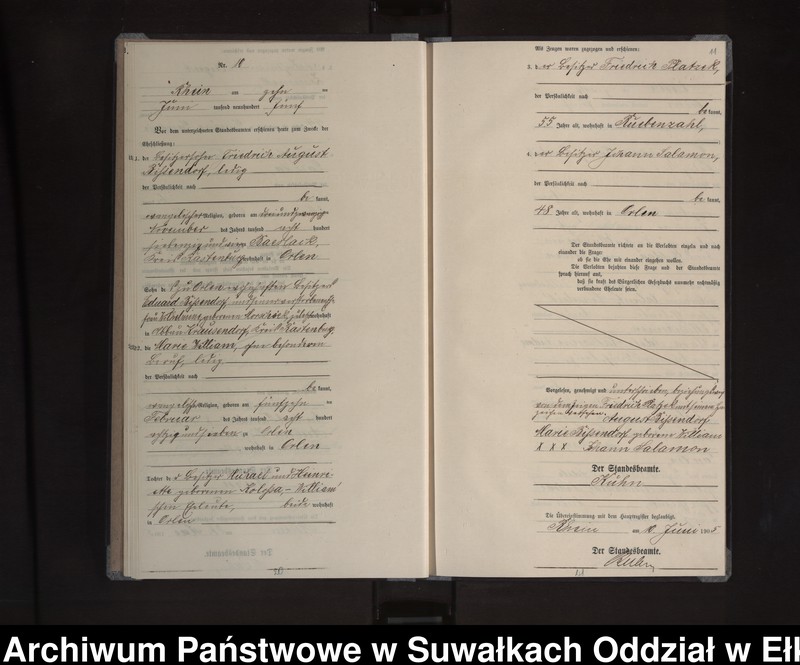 Nr. 18
Rhein am zehn ten
Juni tausend neunhundert fünf
Vor dem unterzeichneten Standesbeamten erschienen heute zum Zwecke der
Eheschließung:
1. der Besitzersohn Friedrich August
Rissendorf, ledig
der Persönlichkeit nach
be kannt,
evangelischer Religion, geboren am dreiundzwanzig
November des Jahres tausend acht hundert
siebenzig und
Kreis Rastenburg wohnhaft in Orlen
Sohn des zu Orlen wohnhaften Besitzers
Eduard Rissendorf und seiner verstorbenen Ehe-
frau Wilhelmine, geborenen zuletzt wohnhaft
in Krausendorf, Kreis Rastenburg
2. die Marie William, ohne besonderen
Beruf, ledig
der Persönlichkeit nach
be kannt,
evangelischer Religion, geboren am fünfzehn ten
Februar des Jahres tausend acht hundert
achtzig und sieben zu Orlen
wohnhaft in Orlen
Tochter der Besitzer Michael und Henri-
ette geborenen Kolossa, William'
schen Eheleute, beide wohnhaft
in Orlen
Als Zeugen waren zugezogen und erschienen:
3. der Besitzer Friedrich Platzek,
der Persönlichkeit nach
be kannt,
55 Jahre alt, wohnhaft in Ruebenzahl,
4. der Besitzer Johann Salamon,
der Persönlichkeit nach
be kannt,
48 Jahre alt, wohnhaft in Orlen
Der Standesbeamte richtete an die Verlobten einzeln und nach
einander die Frage:
ob sie die Ehe mit einander eingehen wollen.
Die Verlobten bejahten diese Frage und der Standesbeamte
sprach hierauf aus,
daß sie kraft des Bürgerlichen Gesetzbuchs nunmehr rechtmäßig
verbundene Eheleute seien.
Vorgelesen, genehmigt und unterschrieben, beziehungsweise
von dem Zeugen Friedrich Platzek mit seinem Hand-
zeichen versehen. August Rissendorf
Marie Rissendorf geborene William
X X X Johann Salamon
Der Standesbeamte.
Kühn
Die Übereinstimmung mit dem Hauptregister beglaubigt.
Rhein am 10. Juni 1905
Der Standesbeamte.
Kühn
Archiwum Państwowe w Suwałkach Oddział w Ełk